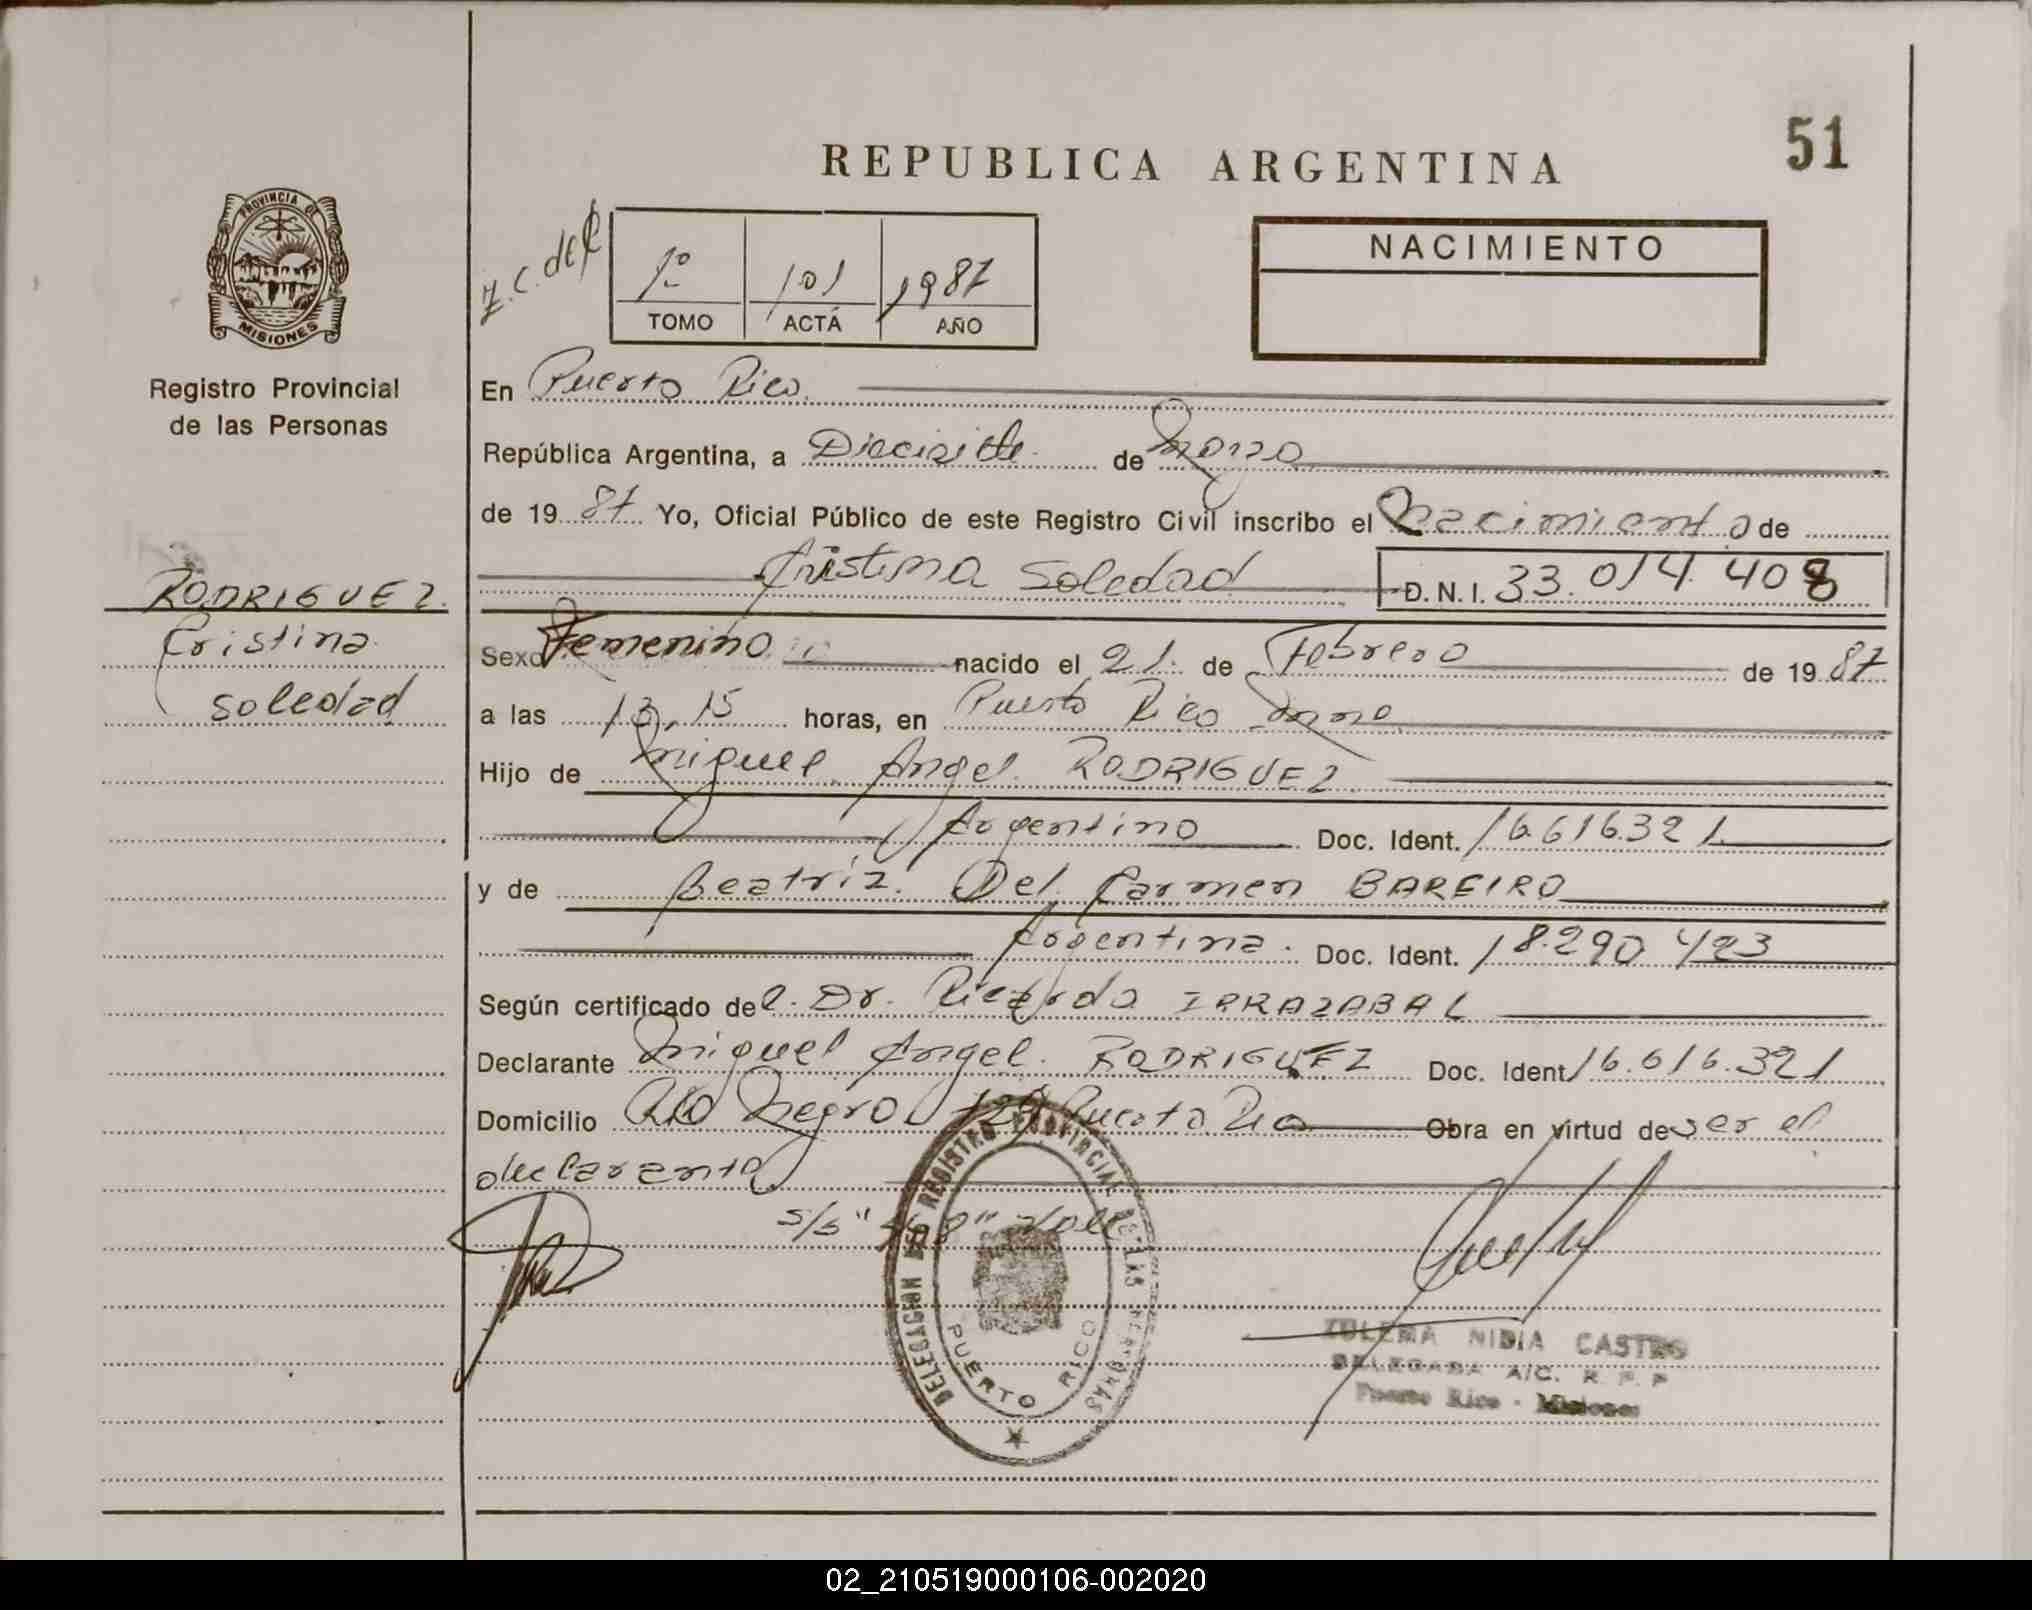 51
REPUBLICA ARGENTINA
PROVINCIA DE
MISIONES
Registro Provincial
de las Personas
1º 101 1987
TOMO ACTA AÑO
NACIMIENTO
En Puerto Rico
República Argentina, a Diecisiete de Marzo
de 19 87 Yo, Oficial Público de este Registro Civil inscribo el Nacimiento de
Cristina Soledad D.N.I. 33.014.408
RODRIGUEZ.
Cristina
Soledad
Sexo Femenino nacido el 21 de Febrero de 19 87
a las 13,15 horas, en Puerto Rico Mnes
Hijo de Miguel Angel RODRIGUEZ
Argentino Doc. Ident. 16.616.321
y de Beatriz Del Carmen BAREIRO
Argentina. Doc. Ident. 18.290.423
Según certificado del Dr. Ricardo IRRAZABAL
Declarante Miguel Angel RODRIGUEZ Doc. Ident 16.616.321
Domicilio Rio Negro 129 Puerto Rico Obra en virtud de ser el
declarante
S/S "8" Vale
DELEGACION DEL REGISTRO PROVINCIAL DE LAS PERSONAS
PUERTO RICO
ZULEMA NIDIA CASTRO
DELEGADA A/C. R. P. P
Puerto Rico - Misiones
02_210519000106-002020